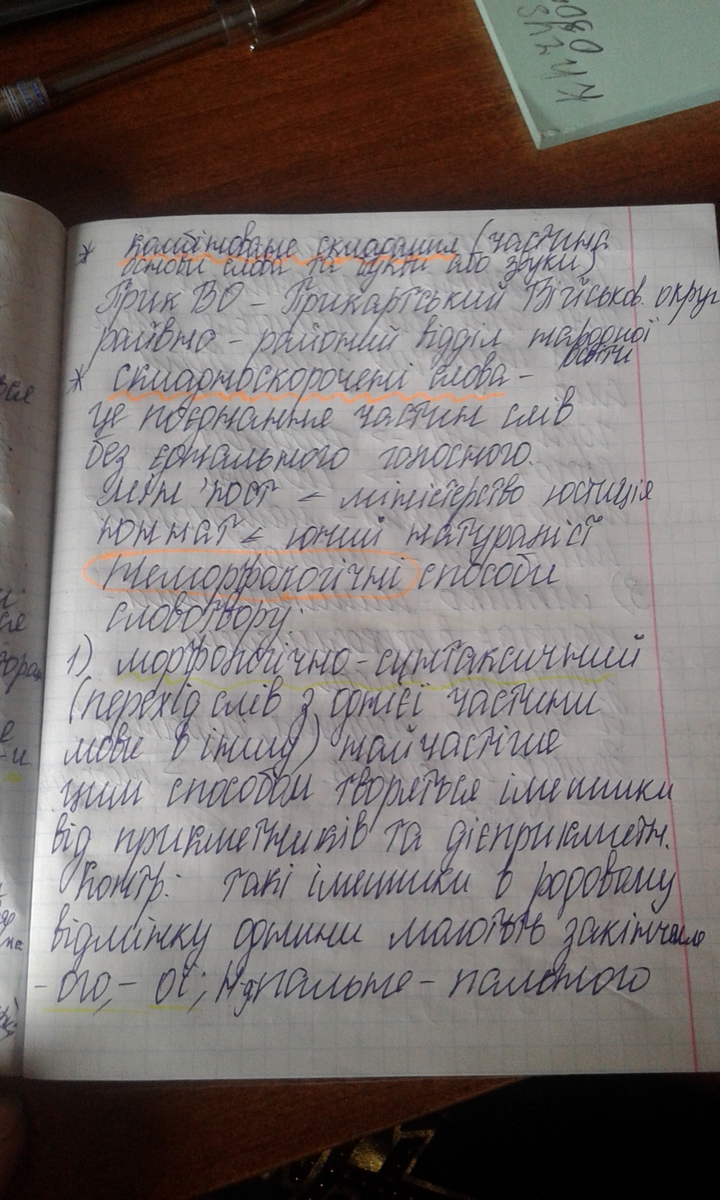 * комбіноване складання (частина
основи слова та букви або звуки)
Прик ВО – Прикарпський Військов. округ
райвно – районий відділ народної
освіти
* складноскорочені слова –
це поєднання частин слів
без єднального голосного.
мін'юст < міністерство юстиція
юннат < юний натураліст
Неморфологічні способи
словотвору:
1) морфологічно-синтаксичний
(перехід слів з однієї частини
мови в іншу) найчастіше
цим способом творяться іменники
від прикметників та дієприкметн.
Контр: такі іменники в родовому
відмінку однини мають закінчення
-ого, - ої; Н-д пальне – пального